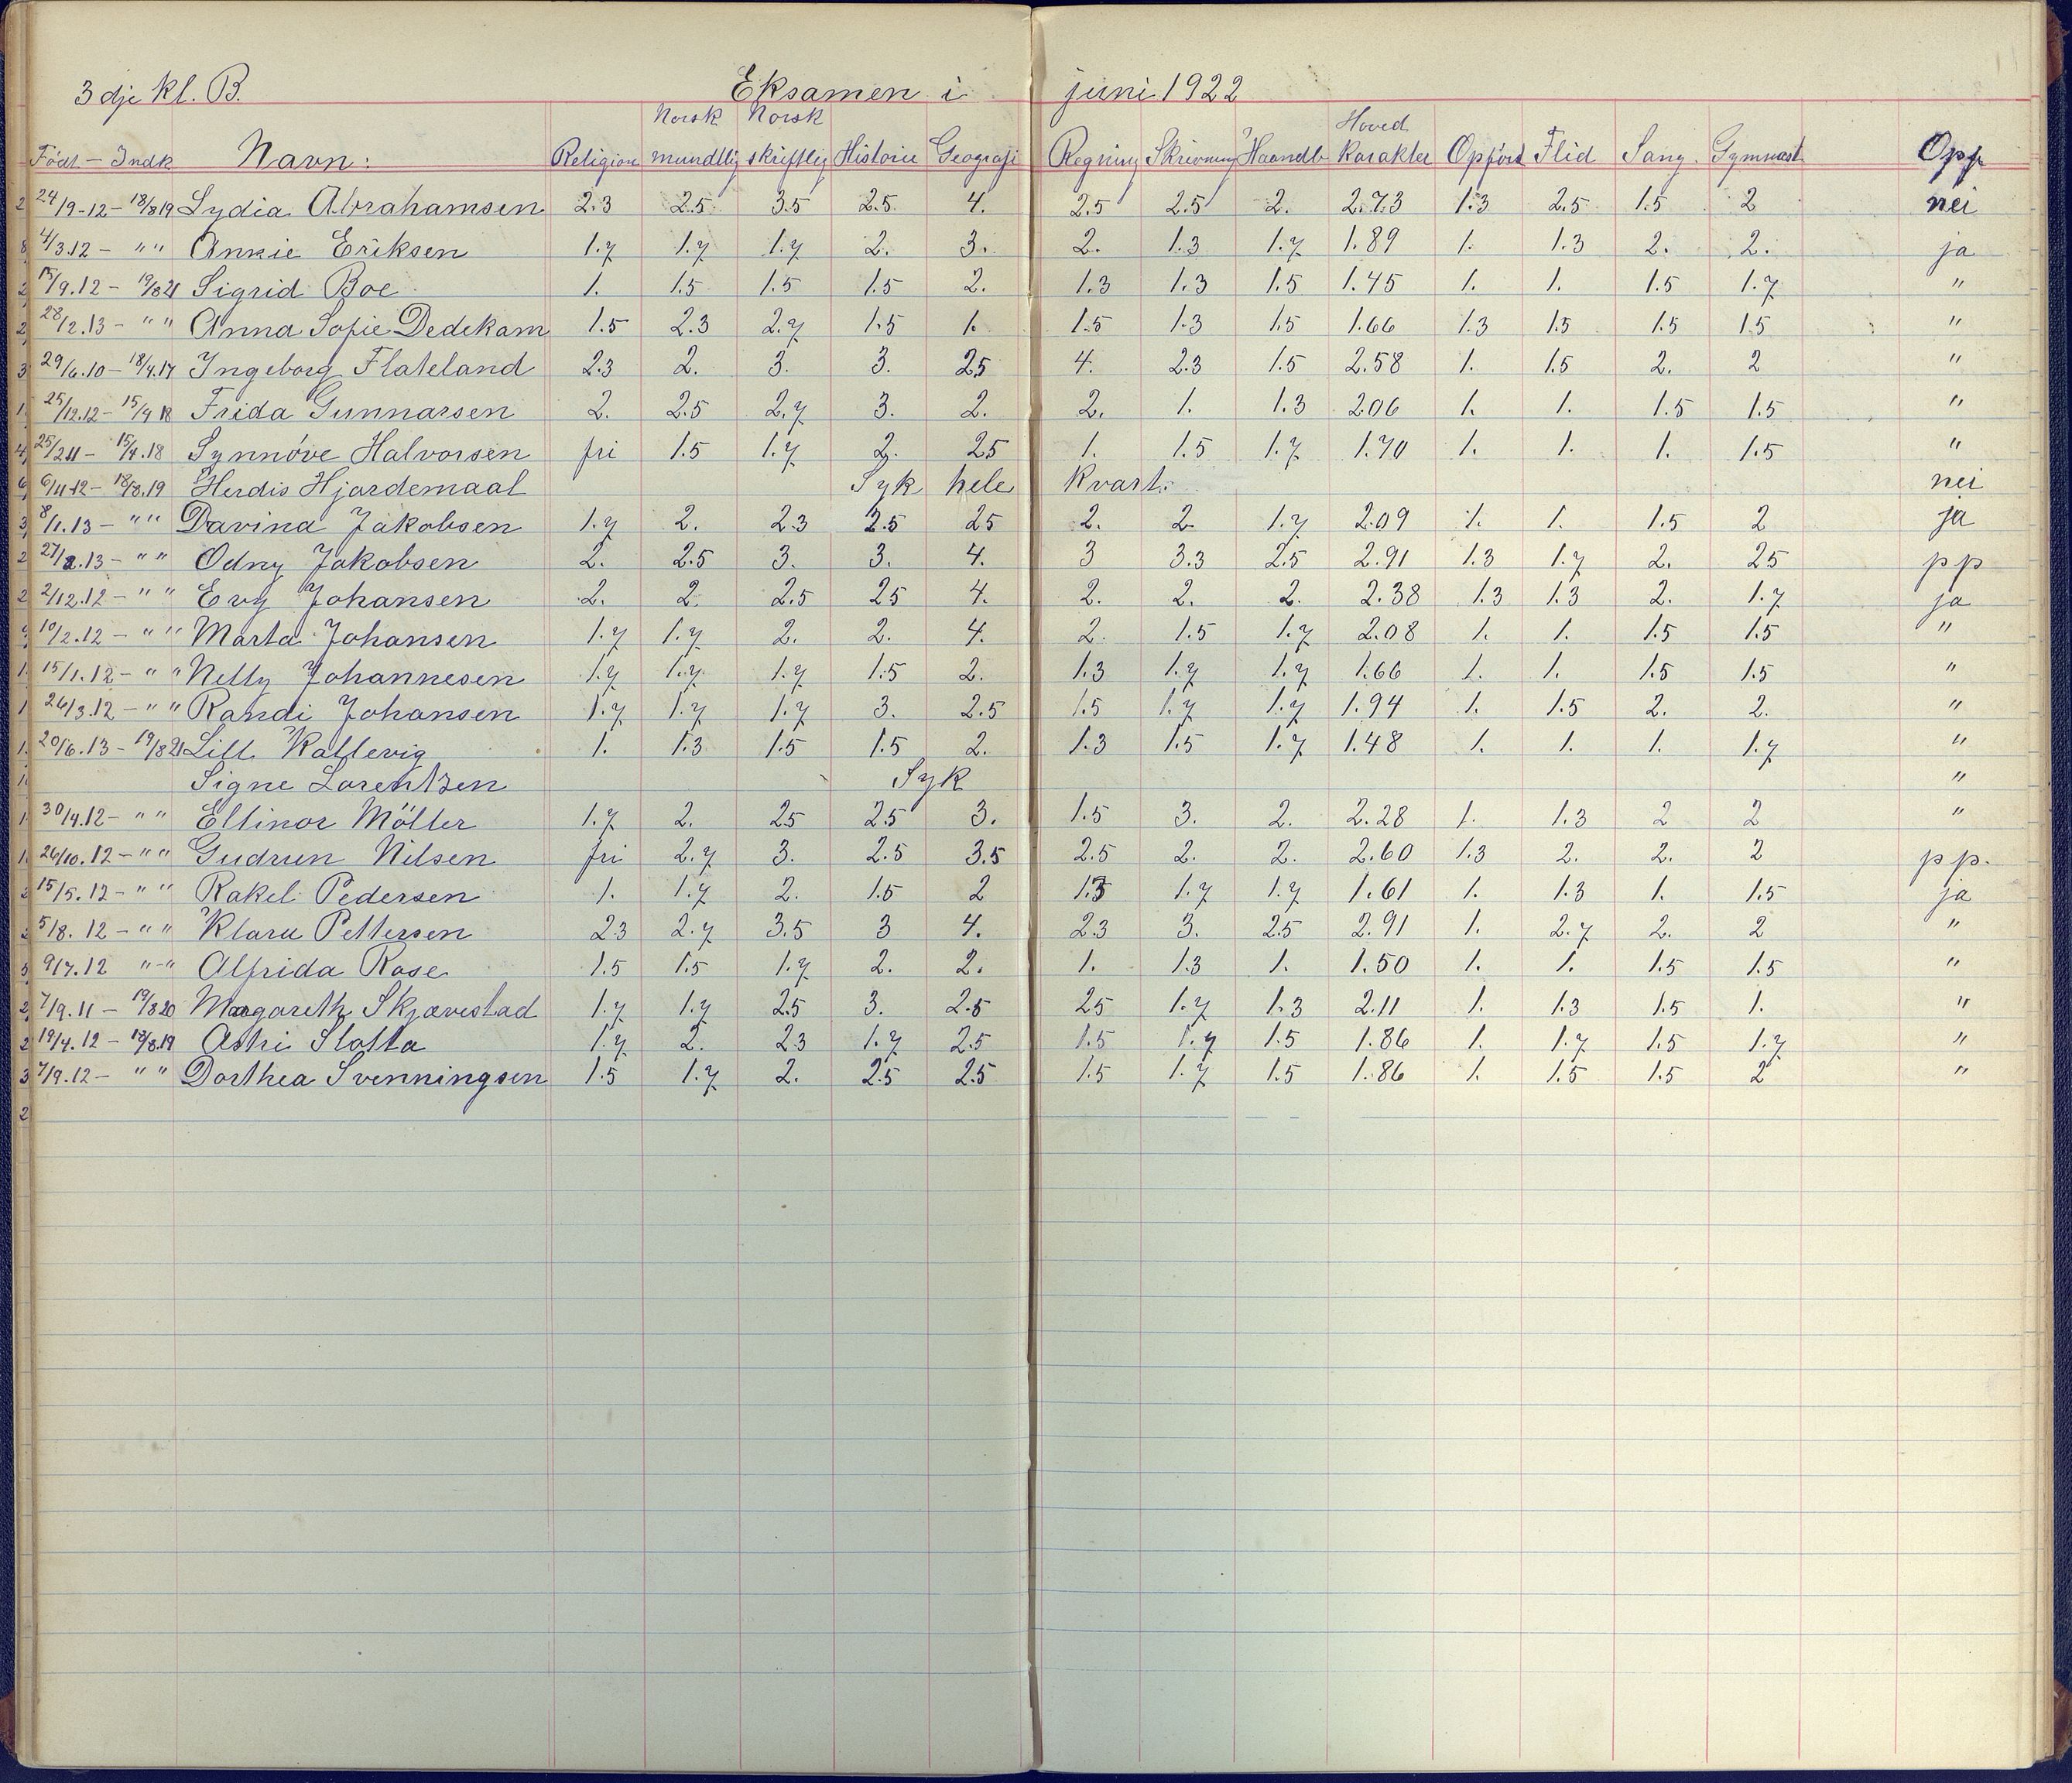 3dje kl. B. Eksamen i juni 1922
Norsk Norsk Hoved
Födt - Indk Navn: Religion mundtlig skriftlig Historie Geografi Regning Skrivning Haandb Karakter Opförs Flid Sang. Gymnast Opp
24/9-12 - 18/8 19 Lydia Abrahamsen 2.3 2.5 3.5 2.5 4. 2.5 2.5 2. 2.73 1.3 2.5 1.5 2 nei
4/3.12 - " " Annie Eriksen 1.7 1.7 1.7 2. 3. 2. 1.3 1.7 1.89 1. 1.3 2. 2. ja
15/9.12 - 19/8 21 Sigrid Boe 1. 1.5 1.5 1.5 2. 1.3 1.3 1.5 1.45 1. 1. 1.5 1.7 "
28/2.13 - " " Anna Sofie Dedekam 1.5 2.3 2.7 1.5 1. 1.5 1.3 1.5 1.66 1.3 1.5 1.5 1.5 "
29/6.10 - 18/4.17 Ingeborg Flateland 2.3 2. 3. 3. 25 4. 2.3 1.5 2.58 1. 1.5 2. 2 "
25/12.12 - 15/4 18 Frida Gunnarsen 2. 2.5 2.7 3. 2. 2. 1. 1.3 2.06 1. 1. 1.5 1.5 "
25/2 11 - 15/4.18 Synnöve Halvorsen fri 1.5 1.7 2. 25 1. 1.5 1.7 1.70 1. 1. 1. 1.5 "
6/11-12 - 18/8.19 Herdis Hjardemaal Syk hele kvart. nei
8/1.13 - " " Davina Jakobsen 1.7 2. 2.3 2.5 25 2. 2 1.7 2.09 1. 1. 1.5 2 ja
27/2.13 - " " Odny Jakobsen 2. 2.5 3. 3. 4. 3 3.3 2.5 2.91 1.3 1.7 2. 25 pp
2/12.12 - " " Evy Johansen 2. 2. 2.5 25 4. 2. 2. 2. 2.38 1.3 1.3 2. 1.7 ja
10/2.12 - " " Marta Johansen 1.7 1.7 2. 2. 4. 2. 1.5 1.7 2.08 1. 1. 1.5 1.5 "
15/1.12 - " " Nelly Johannesen 1.7 1.7 1.7 1.5 2. 1.3 1.7 1.7 1.66 1. 1. 1.5 1.5 "
26/3.12 - " " Randi Johansen 1.7 1.7 1.7 3. 2.5 1.5 1.7 1.7 1.94 1. 1.5 2. 2. "
20/6.13 - 19/8 21 Lill Kallevig 1. 1.3 1.5 1.5 2. 1.3 1.5 1.7 1.48 1. 1. 1. 1.7 "
Signe Lorentzen Syk "
30/4.12 - " " Ellinor Möller 1.7 2. 25 2.5 3. 1.5 3. 2. 2.28 1. 1.3 2 2 "
26/10.12 - " " Gudrun Nilsen fri 2.7 3. 2.5 3.5 2.5 2. 2. 2.60 1.3 2. 2. 2 pp.
15/5.12 - " " Rakel Pedersen 1. 1.7 2. 1.5 2 1.3 1.7 1.7 1.61 1. 1.3 1. 1.5 ja
5/8.12 - " " Klara Pettersen 23 2.7 3.5 3 4. 23 3. 25 2.91 1. 2.7 2. 2 "
9/7.12 " - " Alfrida Rose 1.5 1.5 1.7 2. 2. 1. 1.3 1. 1.50 1. 1. 1.5 1.5 "
7/9.11 - 19/8 20 Margareth Skjævestad 1.7 1.7 25 3. 2.5 25 1.7 1.3 2.11 1. 1.3 1.5 1. "
19/4.12 - 18/8.19 Astri Slotta 1.7 2. 23 1.7 2.5 1.5 1.7 1.5 1.86 1. 1.7 1.5 1.7 "
7/9.12 - " " Dorthea Svenningsen 1.5 1.7 2. 2.5 2.5 1.5 1.7 1.5 1.86 1. 1.5 1.5 2 "